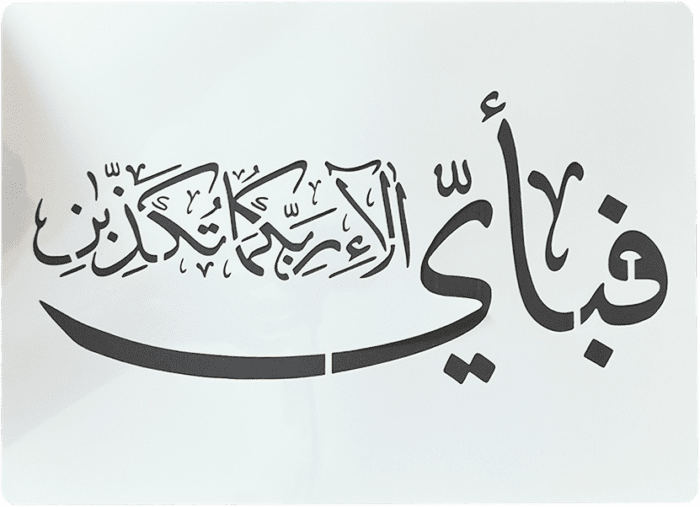 فبأيّ الاءِ ربّكما تُكذّبنِ